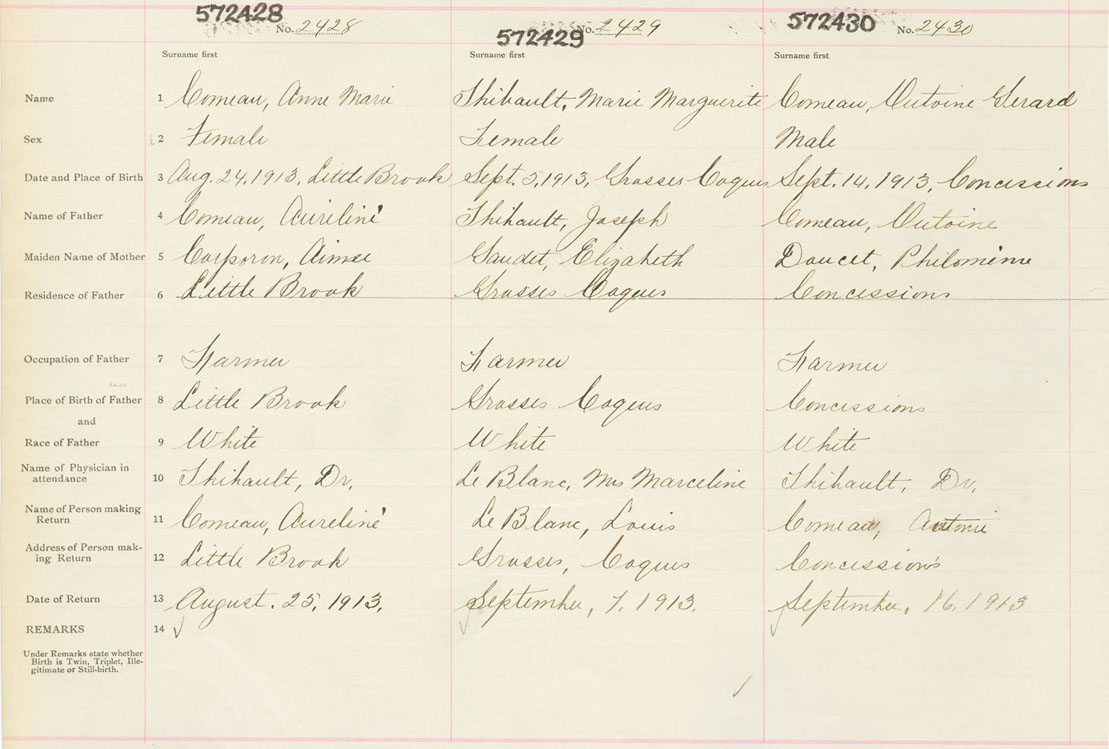 572428 No. 2428 572429 No. 2429 572430 No. 2430
Surname first Surname first Surname first
Name 1 Comeau, Anne Marie Thibault, Marie Marguerite Comeau, Antoine Gerard
Sex 2 Female Female Male
Date and Place of Birth 3 Aug. 24, 1913, Little Brook Sept. 5, 1913, Grosses Coques Sept. 14, 1913, Concessions
Name of Father 4 Comeau, Aureliné Thibault, Joseph Comeau, Antoine
Maiden Name of Mother 5 Corporon, Aimee Gaudet, Elizabeth Doucet, Philomène
Residence of Father 6 Little Brook Grosses Coques Concessions
Occupation of Father 7 Farmer Farmer Farmer
Place of Birth of Father 8 Little Brook Grosses Coques Concessions
and
Race of Father 9 White White White
Name of Physician in
attendance 10 Thibault, Dr. Le Blanc, Mrs Marceline Thibault, Dr.
Name of Person making
Return 11 Comeau, Aureliné Le Blanc, Louis Comeau, Antoine
Address of Person mak-
ing Return 12 Little Brook Grosses, Coques Concessions
Date of Return 13 August. 25, 1913. September, 7, 1913. September, 16, 1913
REMARKS 14
Under Remarks state whether
Birth is Twin, Triplet, Ille-
gitimate or Still-birth.